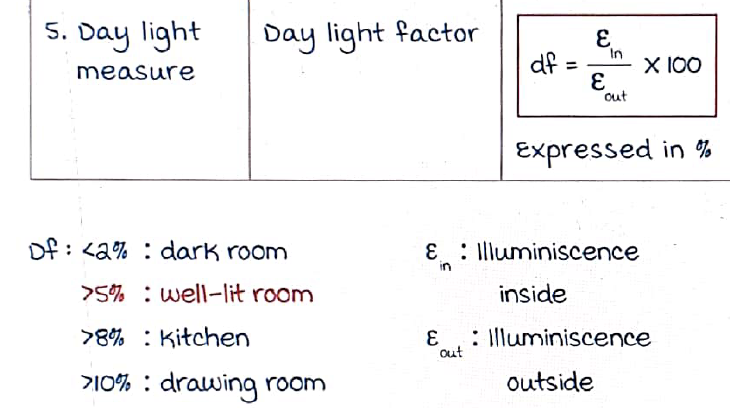 5. Day light measure
Day light factor
df = Ein / Eout X 100
Expressed in %
Df : <2% : dark room
>5% : well-lit room
>8% : Kitchen
>10% : drawing room
Ein : Illuminiscence inside
Eout : Illuminiscence outside